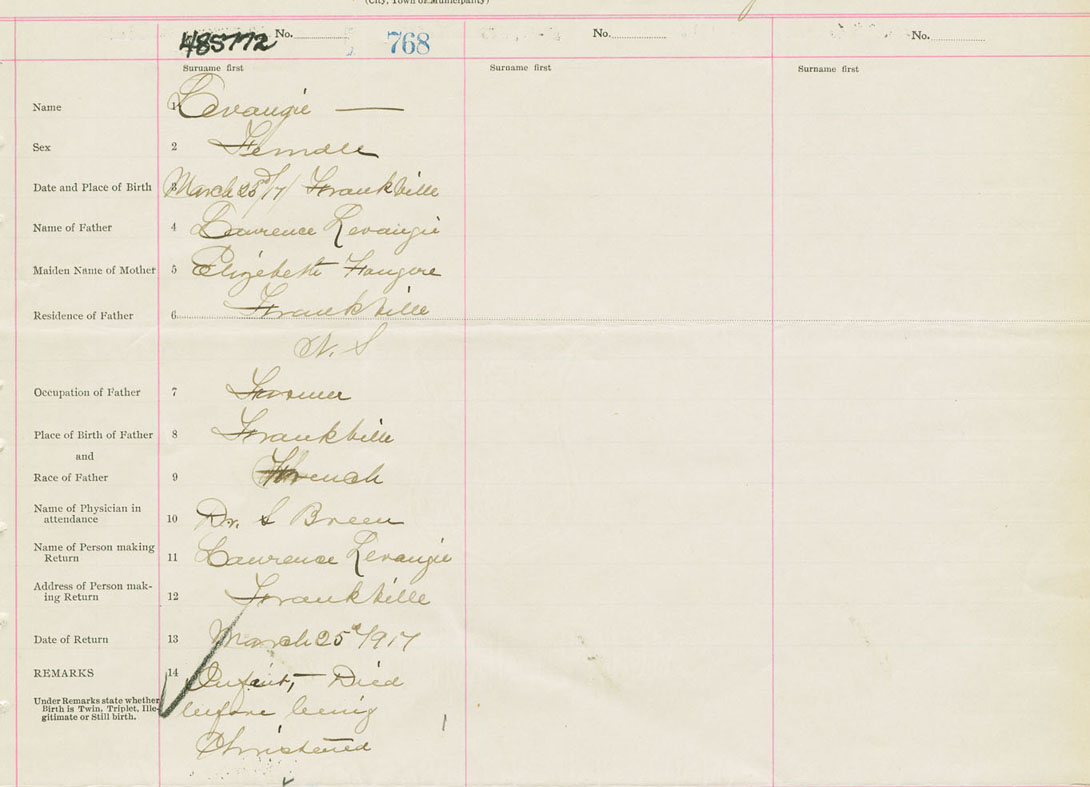 (City, Town or Municipality)
485772 No. 768 No. No.
Surname first Surname first Surname first
Name 1 Levangie —
Sex 2 Female
Date and Place of Birth 3 March 23rd/17/ Frankville
Name of Father 4 Lawrence Levangie
Maiden Name of Mother 5 Elizebeth Fougere
Residence of Father 6 Frankville
N. S
Occupation of Father 7 Farmer
Place of Birth of Father 8 Frankville
and
Race of Father 9 French
Name of Physician in
attendance 10 Dr. S Breen
Name of Person making
Return 11 Lawrence Levangie
Address of Person mak-
ing Return 12 Frankville
Date of Return 13 March 25th/1917
REMARKS 14 Infant, Died
Under Remarks state whether
Birth is Twin, Triplet, Ille-
gitimate or Still birth.
before being
Christened